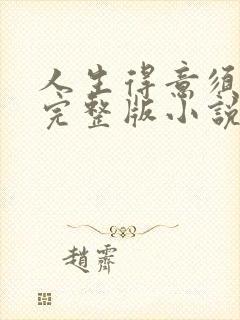 人生得意須
完整版小說
趙霽